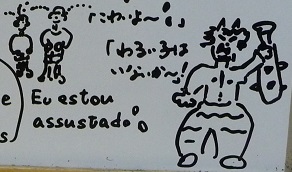 「こわいよ〜！」
「わるい子は
いないか〜！
e
s
Eu estou
assustado!